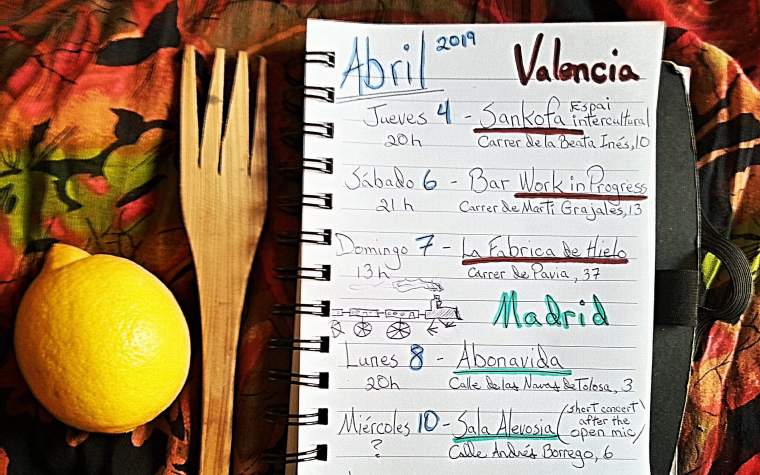 Abril 2019 Valencia
Jueves 4 - Sankofa Espai intercultural
20h Carrer de la Beata Inés, 10
Sábado 6 - Bar Work in Progress
21h Carrer de Martí Grajales, 13
Domingo 7 - La Fabrica de Hielo
13h Carrer de Pavia, 37
Madrid
Lunes 8 - Abonavida
20h Calle de las Navas de Tolosa, 3
Miércoles 10 - Sala Alevosia (short concert after the open mic)
? Calle Andrés Borrego, 6